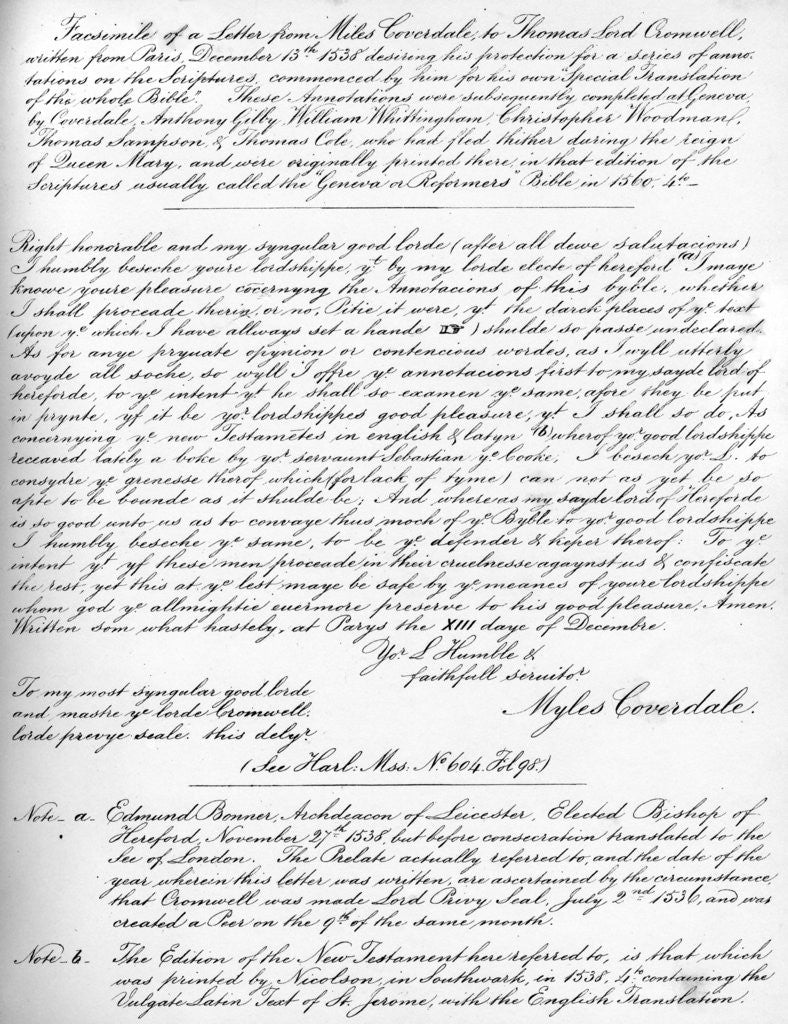 Facsimile of a Letter from Miles Coverdale, to Thomas Lord Cromwell,
written from Paris, December 13th 1538 desiring his protection for a series of anno-
tations on the Scriptures, commenced by him for his own "Special Translation
of the whole Bible". These Annotations were subsequently completed at Geneva
by Coverdale, Anthony Gilby, William Whittingham, Christopher Woodman,
Thomas Sampson, & Thomas Cole, who had fled thither during the reign
of Queen Mary, and were originally printed there, in that edition of the
Scriptures usually called the "Geneva or Reformers" Bible in 1560. 4to
Right honorable and my syngular good lorde (after all dewe salutacions)
I humbly beseche youre lordshippe, yt by my lorde electe of hereford (a) I maye
knowe youre pleasure cōcernyng the Annotacions of this byble, whether
I shall proceade therin, or no, Pitie it were, yt the darck places of ye text
(upon ye which I have allways set a hande ☞) shulde so passe undeclared.
As for anye pryuate opynion or contencious wordes, as I wyll utterly
avoyde all soche, so wyll I offre ye annotacions first to my sayde lord of
hereforde, to ye intent yt he shall so examen ye same, afore they be put
in prynte, yf it be yor lordshippes good pleasure, yt I shall so do. As
concernyng ye new Testamētes in english & latyn (b) wherof yor good lordshippe
receaved lately a boke by yor servaunt Sebastian ye Cooke; I besech yor L. to
consydre ye grenesse therof, which (for lack of tyme) can not as yet be so
apte to be bounde as it shulde be; And whereas my sayde lord of Hereforde
is so good unto us as to convaye thus moch of ye Byble to yor good lordshippe
I humbly beseche ye same, to be ye defender & keper therof: To ye
intent yt yf these men proceade in their cruelnesse agaynst us & confiscate
the rest, yet this at ye lest maye be safe by ye meanes of youre lordshippe
whom god ye allmightie euermore preserve to his good pleasure, Amen.
Written som what hastely, at Parys the XIII daye of Decembre.
Yor L Humble &
faithfull seruitor
Myles Coverdale.
To my most syngular good lorde
and mastre ye lorde Cromwell:
lorde prevye seale. this delyr
(See Harl: Mss: No. 604. Fol 98.)
Note - a - Edmund Bonner, Archdeacon of Leicester, Elected Bishop of
Hereford, November 27th 1538, but before consecration translated to the
See of London. The Prelate actually referred to, and the date of the
year wherein this letter was written, are ascertained by the circumstance
that Cromwell was made Lord Privy Seal, July 2nd 1536, and was
created a Peer on the 9th of the same month.
Note - b - The Edition of the New Testament here referred to, is that which
was printed by Nicolson, in Southwark, in 1538, 4to containing the
Vulgate Latin Text of St. Jerome, with the English Translation.